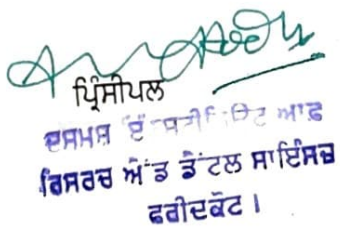 ਪ੍ਰਿੰਸੀਪਲ
ਦਸਮਸ਼ ਇੰਸਟੀਚਿਊਟ ਆਫ਼
ਰਿਸਰਚ ਐਂਡ ਡੈਂਟਲ ਸਾਇੰਸਜ਼
ਫਰੀਦਕੋਟ।